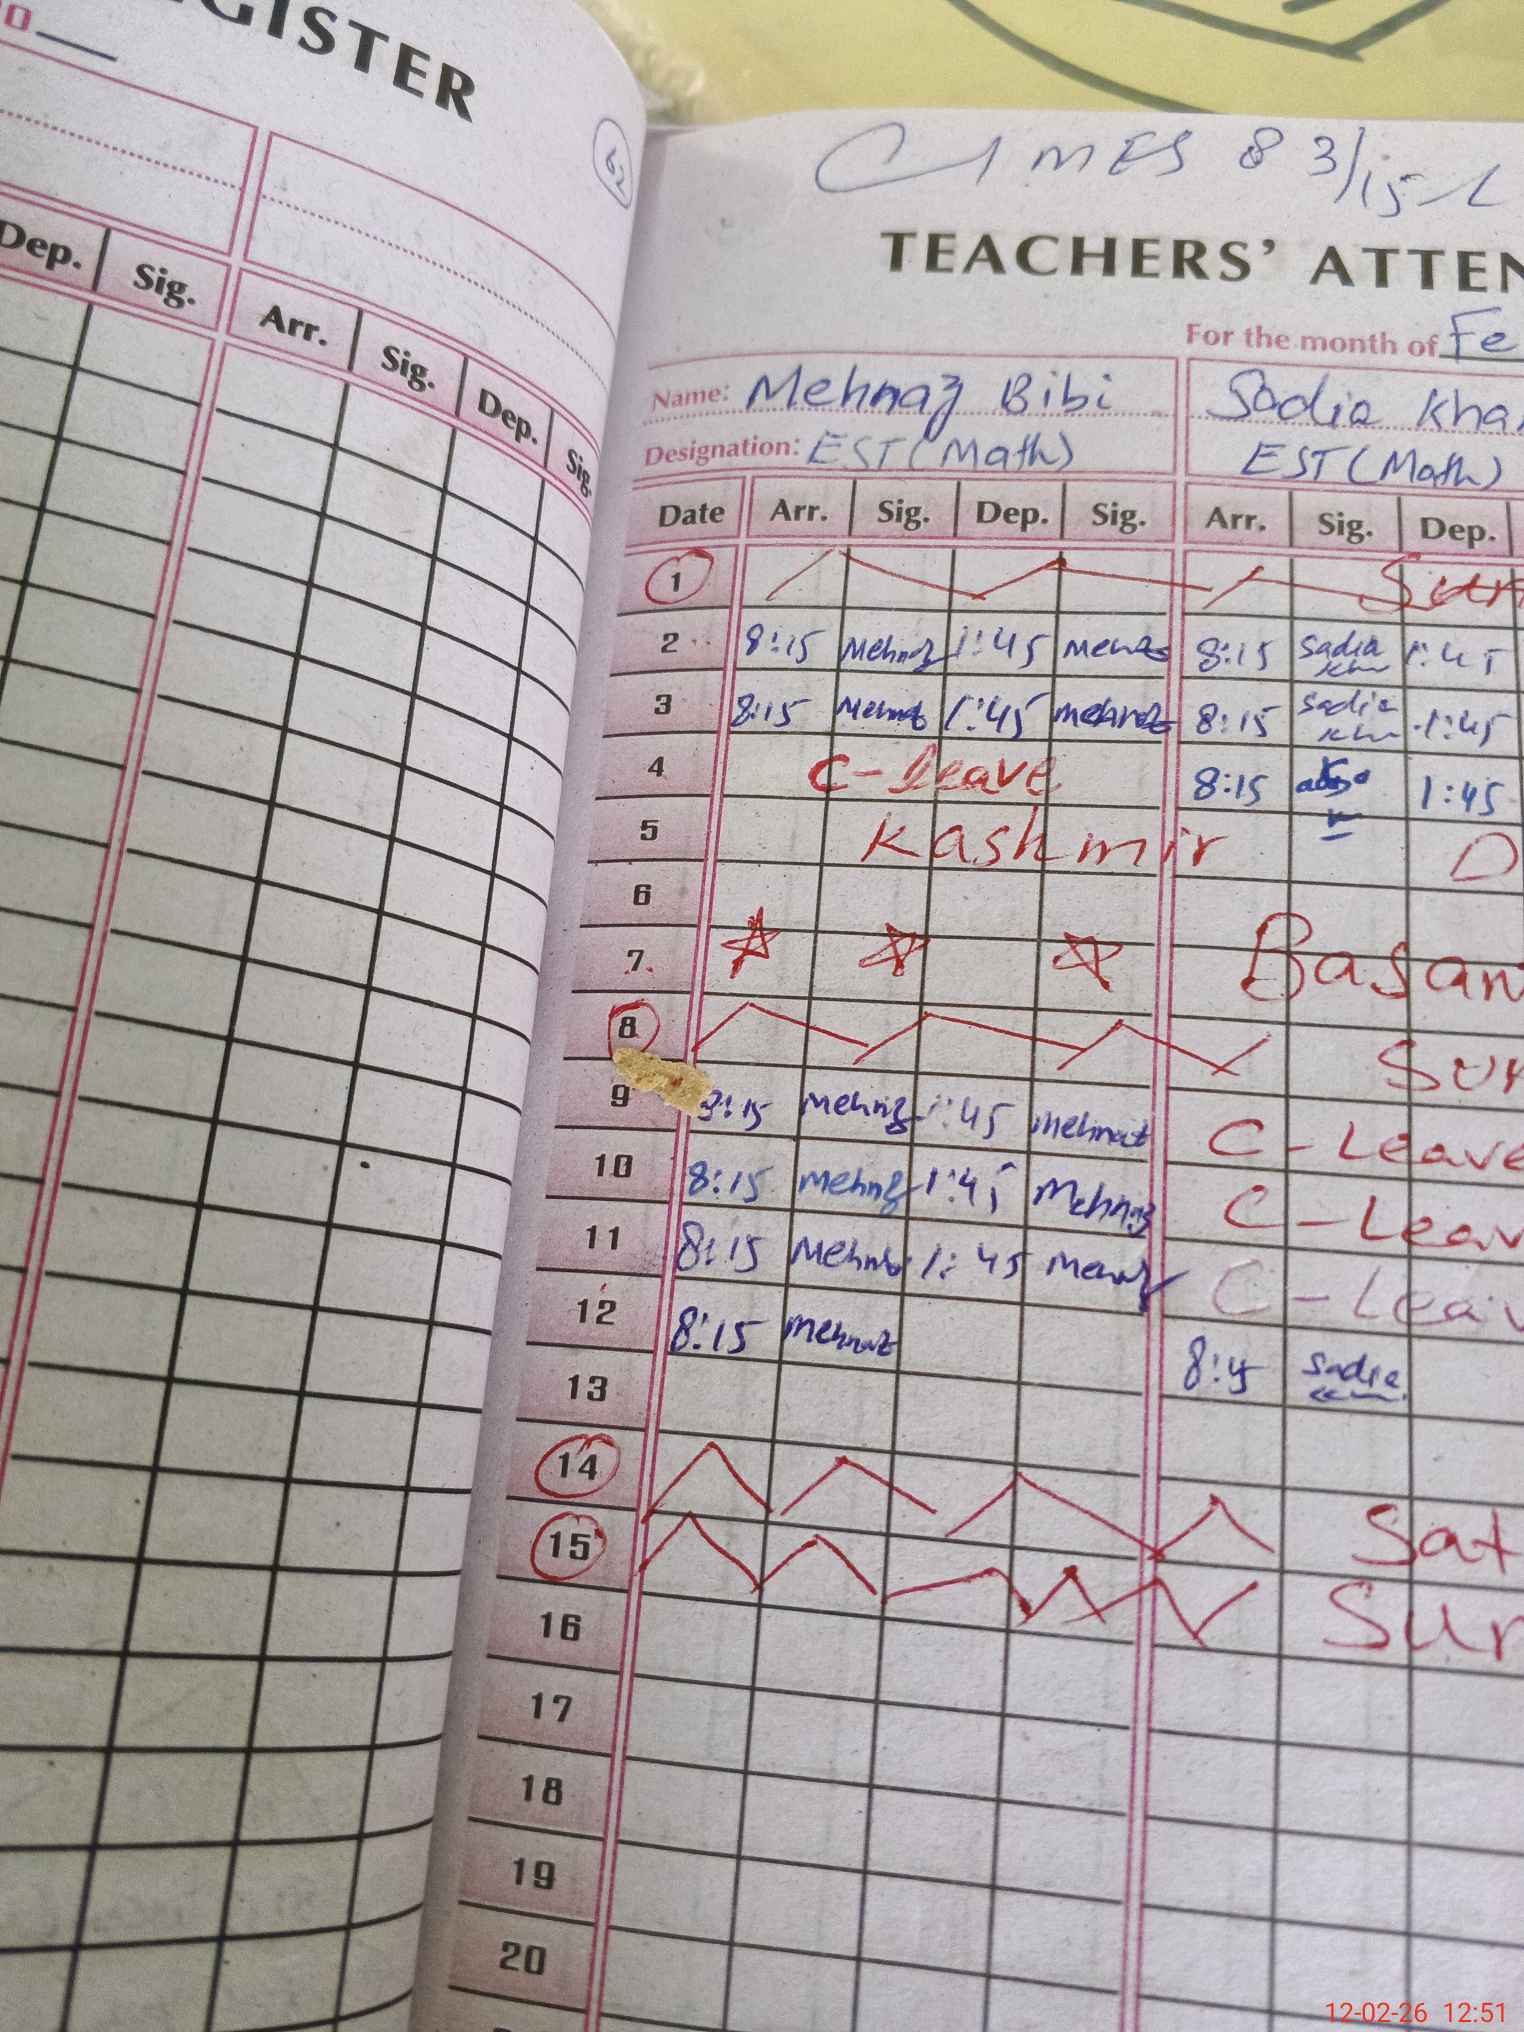 REGISTER
Dep. Sig. Arr. Sig. Dep. Sig.
MES 83/15-L
TEACHERS' ATTEN
For the month of Fe
Name: Mehnaz Bibi Sadia Khan
Designation: EST (Math) EST (Math)
Date Arr. Sig. Dep. Sig. Arr. Sig. Dep.
1 Sun
2 8:15 Mehnaz 1:45 Mehnaz 8:15 Sadia 1:45
3 8:15 Mehnaz 1:45 Mehnaz 8:15 Sadia 1:45
4 C-leave 8:15 1:45
5 Kashmir D
6
7 Basan
8 Sun
9 8:15 Mehnaz 1:45 Mehnaz C-Leave
10 8:15 Mehnaz 1:45 Mehnaz C-Leav
11 8:15 Mehnaz 1:45 Mehnaz C-Leav
12 8:15 Mehnaz 8:15 Sadia
13
14 Sat
15 Sun
16
17
18
19
20
12-02-26 12:51